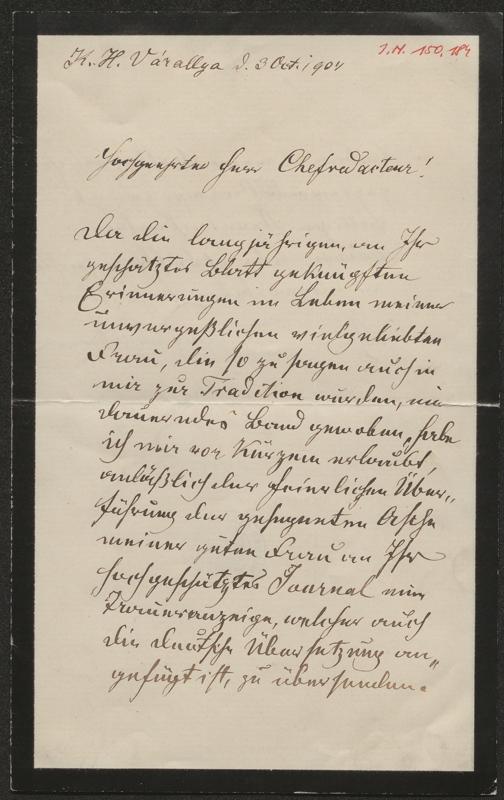 K. H. Várallya d. 3 Oct. 1904
I.N. 150.184
Hochgeehrter Herr Chefredacteur!
Da die langjährigen, an Ihr
geschätztes Blatt geknüpften
Erinnerungen im Leben meiner
unvergeßlichen vielgeliebten
Frau, die so zu sagen auch in
mir zur Tradition wurden, ein
dauerndes Band gewoben, habe
ich mir vor Kürzem erlaubt,
anläßlich der feierlichen Über„
führung der gesegneten Asche
meiner guten Frau an Ihr
hochgeschätztes Journal eine
Traueranzeige, welcher auch
die deutsche Übersetzung an„
gefügt ist, zu übersenden.